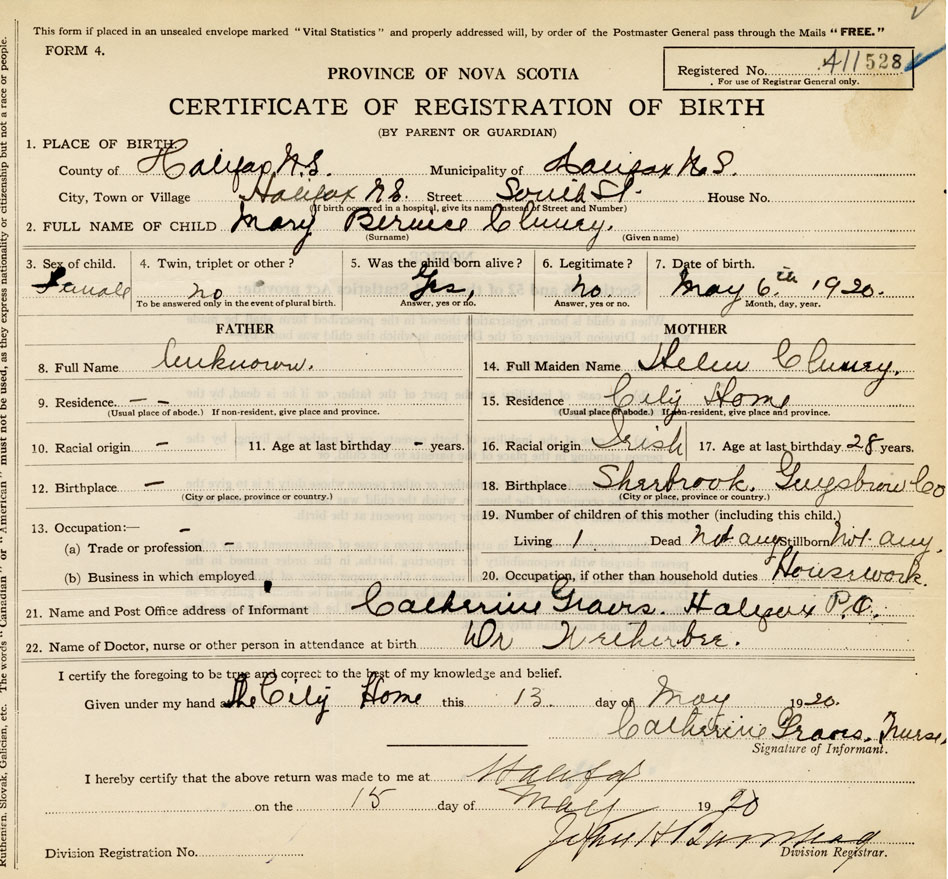 This form if placed in an unsealed envelope marked "Vital Statistics" and properly addressed will, by order of the Postmaster General pass through the Mails "FREE."
FORM 4.
PROVINCE OF NOVA SCOTIA
Registered No. 411528
For use of Registrar General only.
CERTIFICATE OF REGISTRATION OF BIRTH
(BY PARENT OR GUARDIAN)
1. PLACE OF BIRTH.
County of Halifax N.S. Municipality of Halifax N.S.
City, Town or Village Halifax N.S. Street South St. House No.
(If birth occurred in a hospital, give its name instead of Street and Number)
2. FULL NAME OF CHILD Mary Bernice Cluney.
(Surname) (Given name)
3. Sex of child. 4. Twin, triplet or other? 5. Was the child born alive? 6. Legitimate? 7. Date of birth.
Female no Yes, no. May 6th 1920.
To be answered only in the event of plural birth. Answer, yes or no. Answer, yes or no. Month, day, year.
FATHER MOTHER
8. Full Name Unknown. 14. Full Maiden Name Helen Cluney.
9. Residence. – – 15. Residence City Home
(Usual place of abode.) If non-resident, give place and province. (Usual place of abode.) If non-resident, give place and province.
10. Racial origin – 11. Age at last birthday – years. 16. Racial origin Irish 17. Age at last birthday 28 years.
12. Birthplace – 18. Birthplace Sherbrook. Guysbrow Co
(City or place, province or country.) (City or place, province or country.)
13. Occupation:— – 19. Number of children of this mother (including this child.)
(a) Trade or profession – Living 1 Dead not any Stillborn Not any.
(b) Business in which employed 20. Occupation, if other than household duties Housework.
21. Name and Post Office address of Informant Catherine Graves. Halifax P.O.
22. Name of Doctor, nurse or other person in attendance at birth Dr Wetherbee.
I certify the foregoing to be true and correct to the best of my knowledge and belief.
Given under my hand at the City Home this 13 day of May 1920.
Catherine Graves. Nurse.
Signature of Informant.
I hereby certify that the above return was made to me at Halifax
on the 15 day of May 1920
John H
Division Registration No. Division Registrar.
Ruthenian, Slovak, Galician, etc. The words "Canadian" or "American" must not be used, as they express nationality or citizenship but not a race or people.